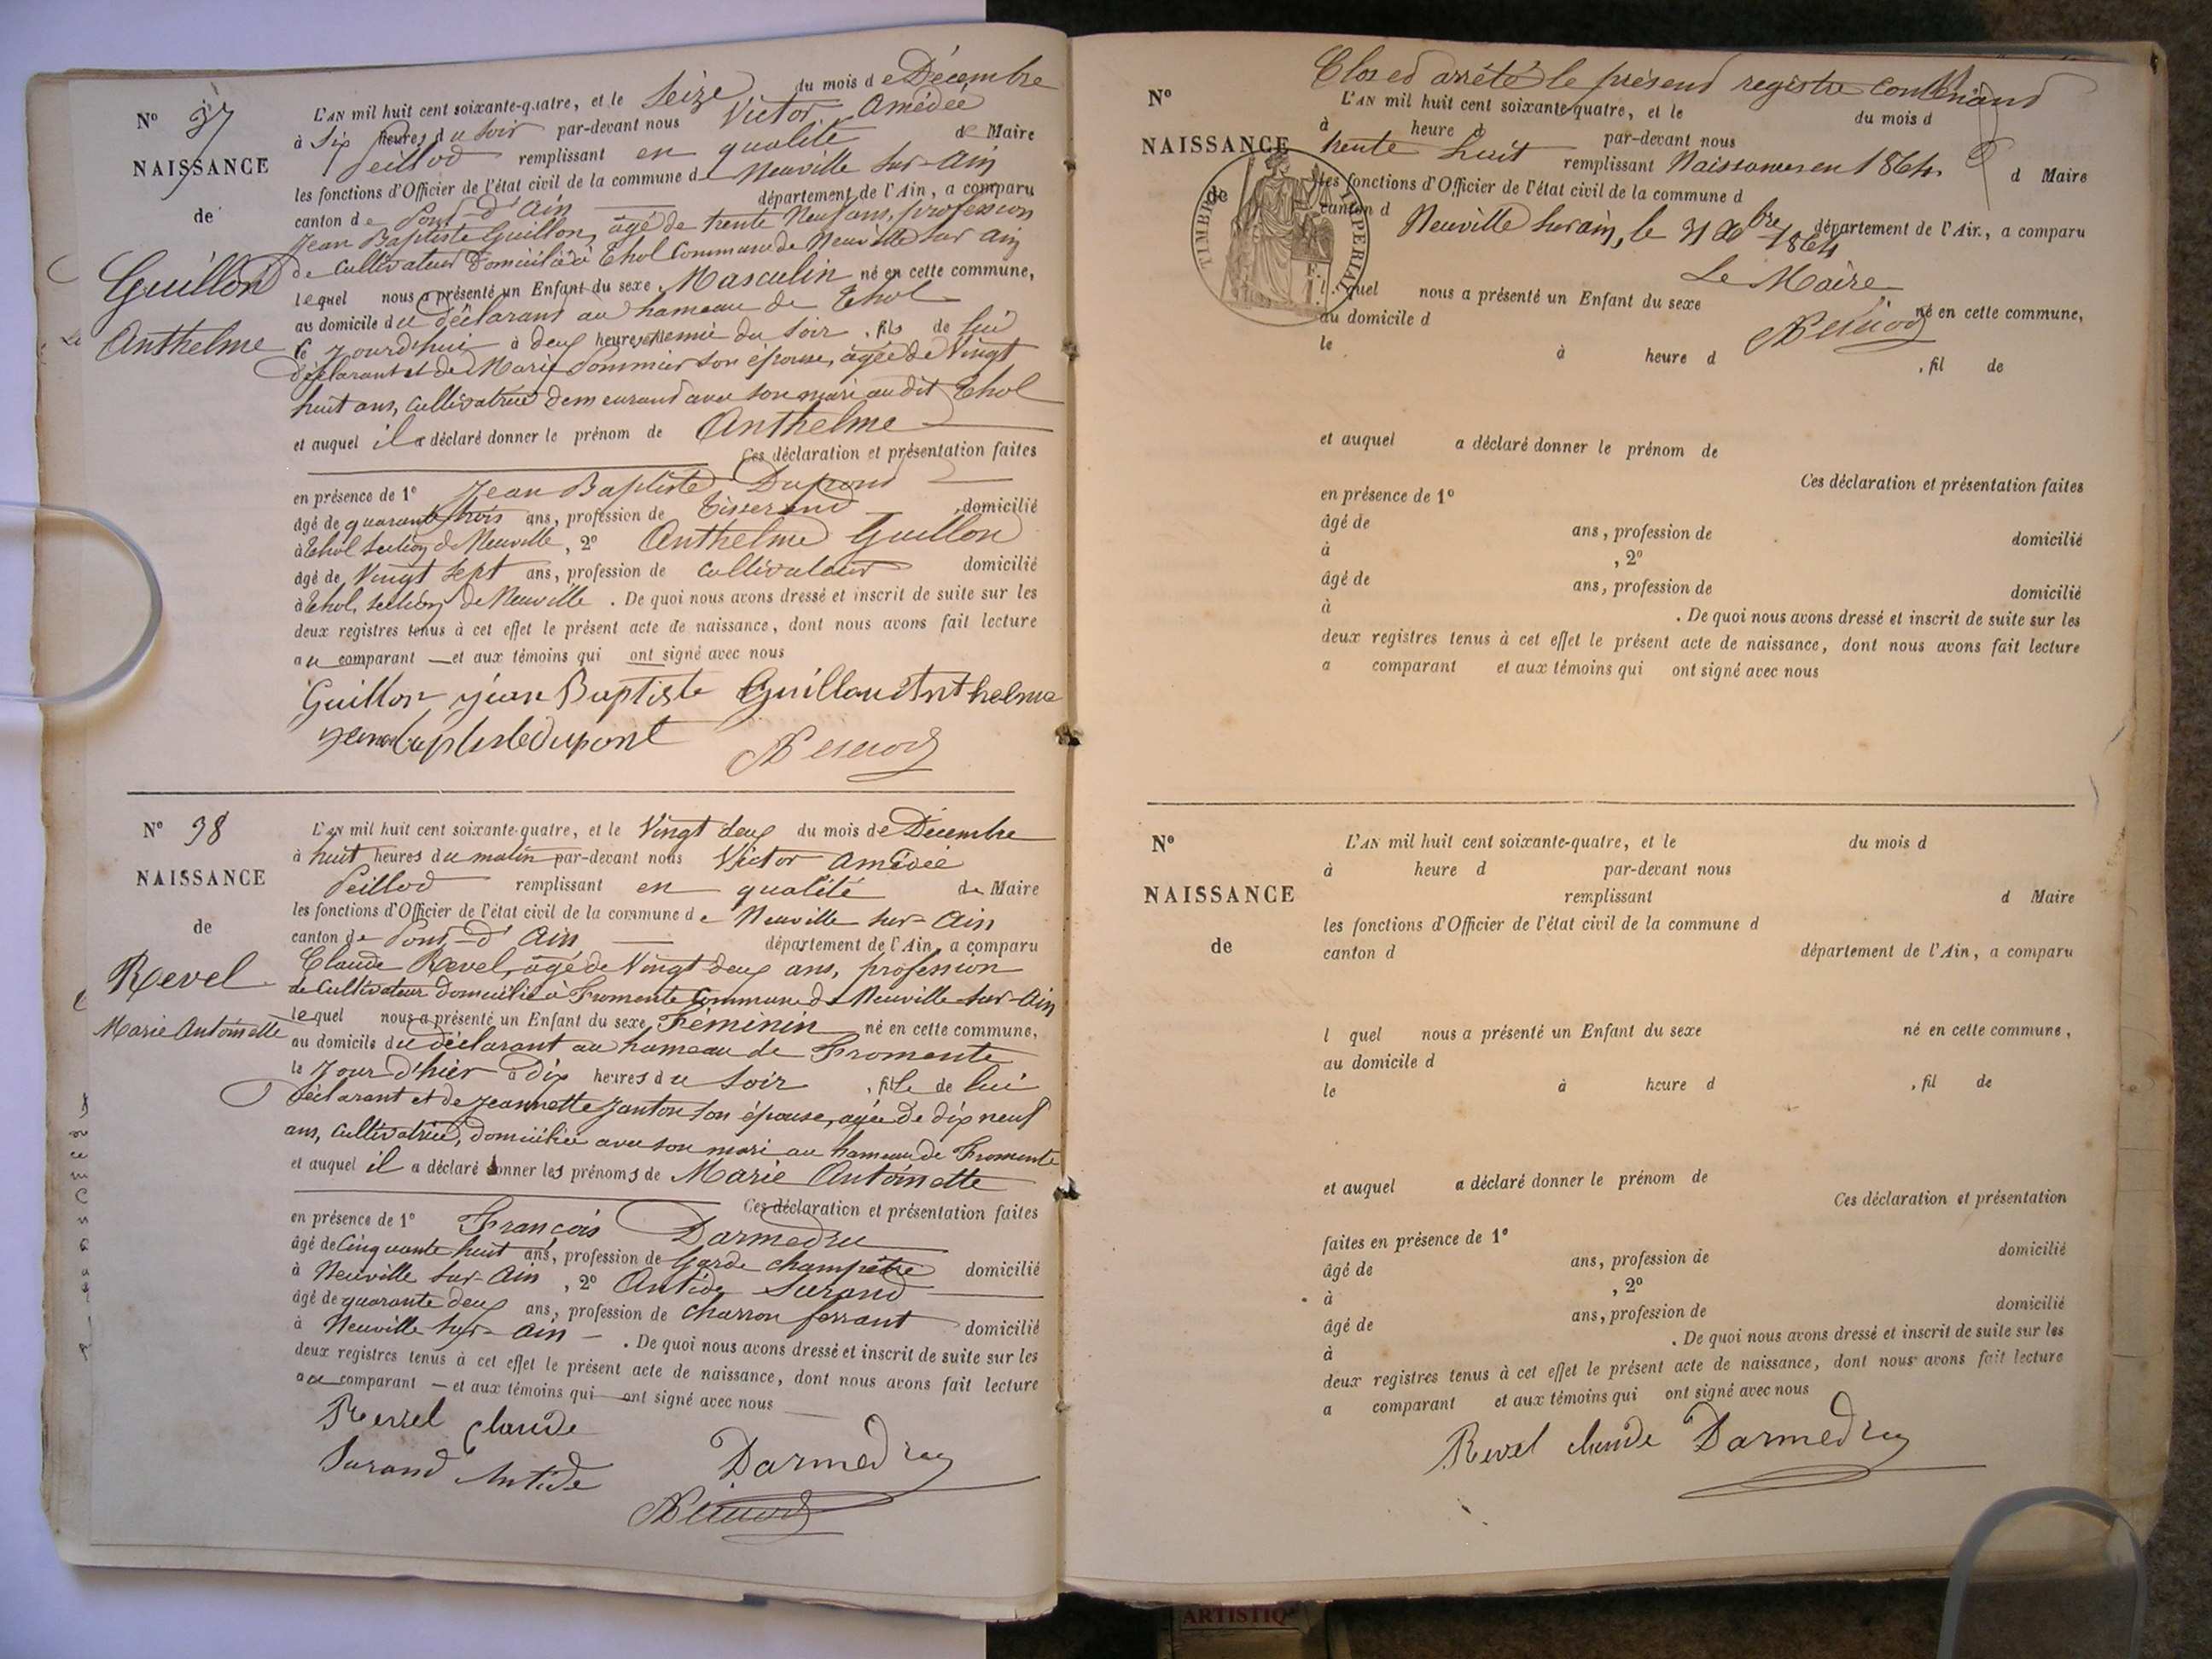 N° 37
NAISSANCE
de
Guillon
Anthelme
L'AN mil huit cent soixante-quatre, et le Seize du mois de Décembre
à Six heures du soir par-devant nous Victor Amédée
Peillod remplissant en qualité de Maire
les fonctions d'Officier de l'état civil de la commune de Neuville sur-Ain
canton de Pont-d'Ain département de l'Ain, a comparu
Jean Baptiste Guillon, âgé de trente Neuf ans, profession
de Cultivateur Domicilié à Thol Commune de Neuville sur Ain
lequel nous a présenté un Enfant du sexe Masculin né en cette commune,
au domicile du déclarant au hameau de Thol
le jourd'hui à deux heures et demie du Soir, fils de lui
déclarant et de Marie Pommier son épouse, âgée de Vingt
huit ans, cultivatrice demeurant avec son mari au dit Thol
et auquel il a déclaré donner le prénom de Anthelme
Ces déclaration et présentation faites
en présence de 1° Jean Baptiste Dupont
âgé de quarante trois ans, profession de Tisserand, domicilié
à Thol section de Neuville, 2° Anthelme Guillon
âgé de Vingt Sept ans, profession de cultivateur domicilié
à Thol, section de Neuville. De quoi nous avons dressé et inscrit de suite sur les
deux registres tenus à cet effet le présent acte de naissance, dont nous avons fait lecture
au comparant et aux témoins qui ont signé avec nous
Guillon jean Baptiste Guillon Anthelme
jean baptiste dupont
N° 38
NAISSANCE
de
Revel
Marie Antoinette
L'AN mil huit cent soixante-quatre, et le Vingt deux du mois de Décembre
à huit heures du matin par-devant nous Victor Amédée
Peillod remplissant en qualité de Maire
les fonctions d'Officier de l'état civil de la commune de Neuville sur-Ain
canton de Pont-d'Ain département de l'Ain, a comparu
Claude Revel, âgé de Vingt deux ans, profession
de Cultivateur Domicilié à Fromente Commune de Neuville sur-Ain
lequel nous a présenté un Enfant du sexe Féminin né en cette commune,
au domicile du déclarant au hameau de Fromente
le jour d'hier à dix heures du Soir, fille de lui
déclarant et de Jeannette Janton son épouse, agée de dix neuf
ans, cultivatrice, domiciliée avec son mari au hameau de Fromente
et auquel il a déclaré donner les prénoms de Marie Antoinette
Ces déclaration et présentation faites
en présence de 1° François Darmedru
âgé de Cinquante huit ans, profession de Garde champêtre domicilié
à Neuville sur-Ain, 2° Antide Surand
âgé de quarante deux ans, profession de charron ferrant domicilié
à Neuville sur-Ain. De quoi nous avons dressé et inscrit de suite sur les
deux registres tenus à cet effet le présent acte de naissance, dont nous avons fait lecture
au comparant et aux témoins qui ont signé avec nous
Revel Claude
Surand Antide Darmedru
Clos et arrêté le présent registre contenant
N° L'AN mil huit cent soixante-quatre, et le du mois d
à heure d par-devant nous
NAISSANCE trente huit remplissant Naissances en 1864. d Maire
de les fonctions d'Officier de l'état civil de la commune d
TIMBRE IMPERIAL
canton d Neuville sur ain, le 31 Xbre 1864 département de l'Ain, a comparu
Le Maire
l quel nous a présenté un Enfant du sexe né en cette commune,
au domicile d
le à heure d , fil de
et auquel a déclaré donner le prénom de
Ces déclaration et présentation faites
en présence de 1°
âgé de ans, profession de domicilié
à , 2°
âgé de ans, profession de domicilié
à . De quoi nous avons dressé et inscrit de suite sur les
deux registres tenus à cet effet le présent acte de naissance, dont nous avons fait lecture
a comparant et aux témoins qui ont signé avec nous
N°
NAISSANCE
de
L'AN mil huit cent soixante-quatre, et le du mois d
à heure d par-devant nous
remplissant d Maire
les fonctions d'Officier de l'état civil de la commune d
canton d département de l'Ain, a comparu
l quel nous a présenté un Enfant du sexe né en cette commune,
au domicile d
le à heure d , fil de
et auquel a déclaré donner le prénom de
Ces déclaration et présentation
faites en présence de 1°
âgé de ans, profession de domicilié
à , 2°
âgé de ans, profession de domicilié
à . De quoi nous avons dressé et inscrit de suite sur les
deux registres tenus à cet effet le présent acte de naissance, dont nous avons fait lecture
a comparant et aux témoins qui ont signé avec nous
Revel claude Darmedru
ARTISTIQ